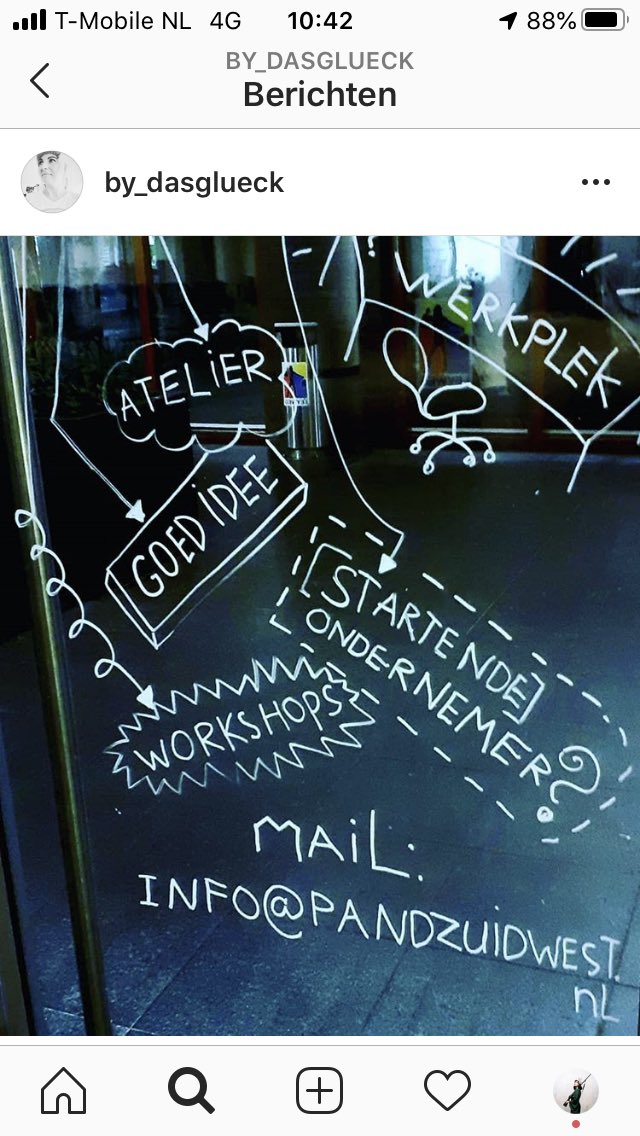 T-Mobile NL 4G 10:42 88%
BY_DASGLUECK
Berichten
by_dasglueck
WERKPLEK
ATELIER
GOED IDEE
[STARTENDE]
ONDERNEMER?
WORKSHOPS
MAIL:
INFO@PANDZUIDWEST.
NL